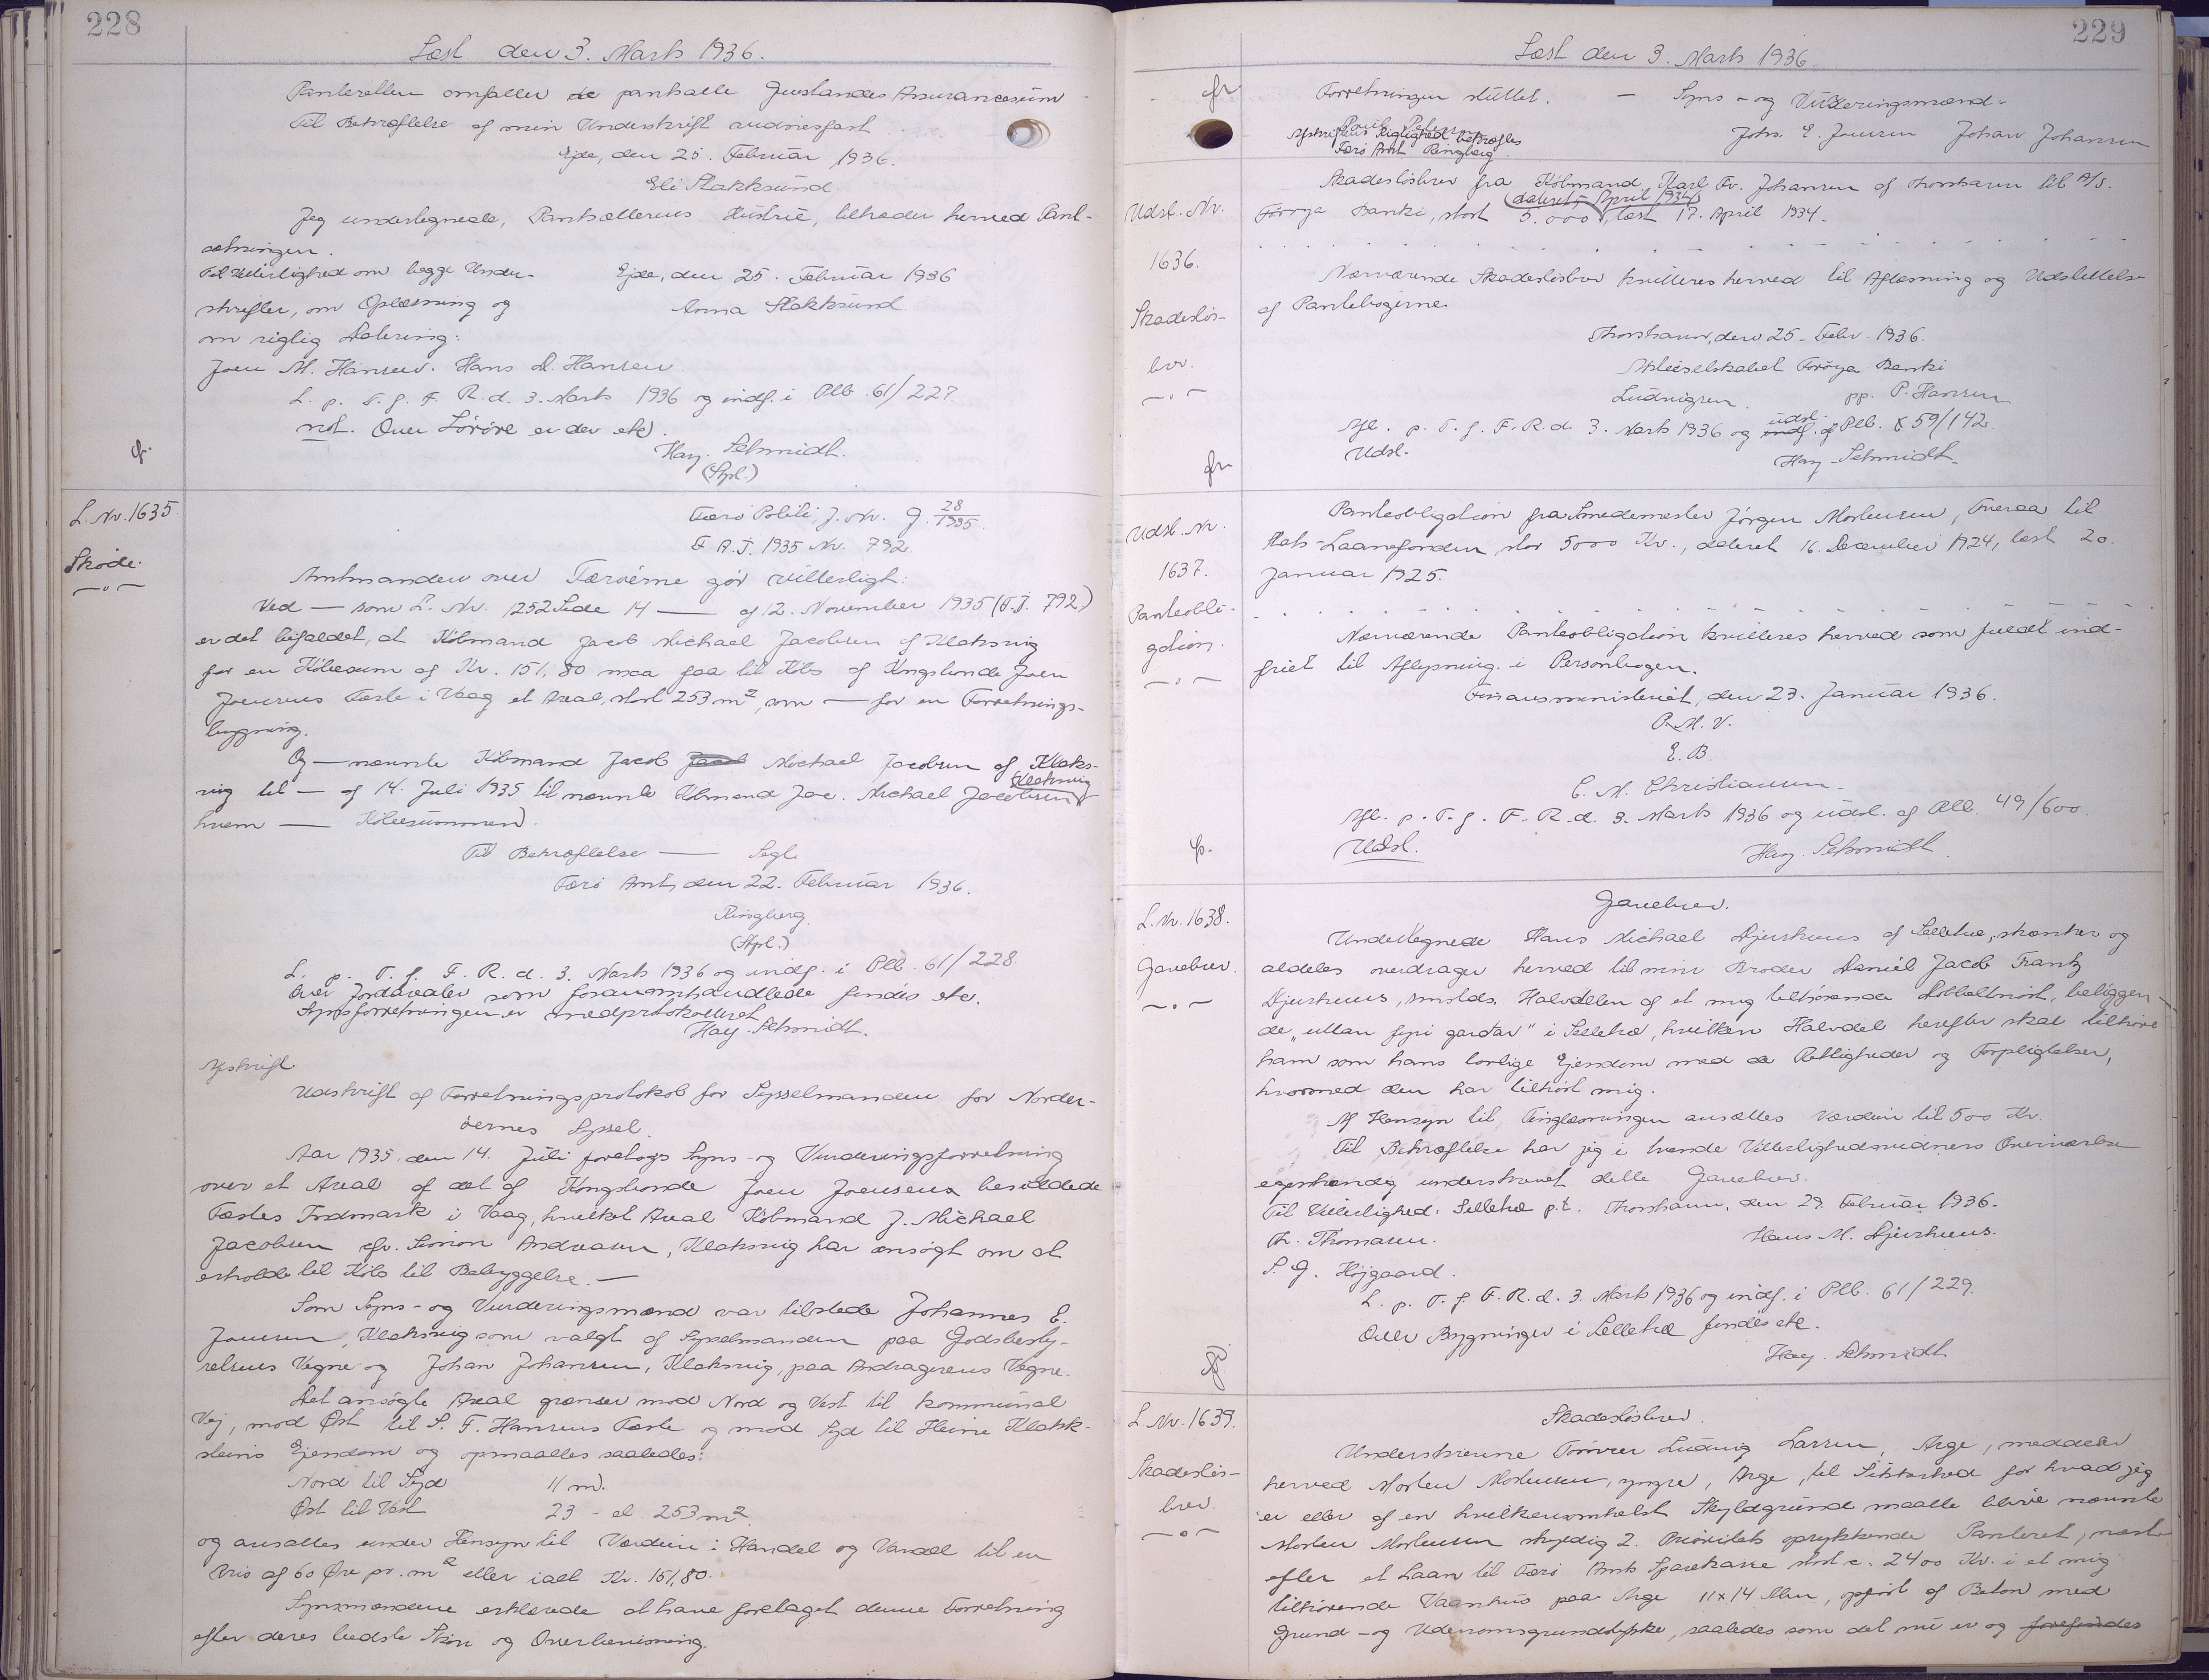 228
Læst den 3. Marts 1936.
Panteretten omfatter de pantsatte Genstandes Assurancesum
Til Bekræftelse af min Underskrift vidnesfast
Ejde, den 25. Februar 1936.
Eli Stakksund.
Jeg undertegnede, Pantsætterens Hustru, tiltræder herved Pant-
sætningen.
Til Vitterlighed om begge Under-
Ejde, den 25. Februar 1936
skrifter, om Oplæsning og
Anna Stakksund
om rigtig Datering:
Joen M. Hansen. Hans D. Hansen
L. p. T. f. F. R. d. 3. Marts 1936 og indf. i Plb. 61/227
not. Over Lorvre er der etc.
Hay. Schmidt.
(Stpl.)
L. Nr. 1635.
Skøde.
Færø Politi J. Nr. G. 28/1935.
F. A. J. 1935 Nr. 792.
Amtmanden over Færøerne gør vitterligt:
Ved — som L. Nr. 1252 Side 14 — af 12. November 1935 (F.J. 792)
er det bifaldet, at Købmand Jacob Michael Jacobsen af Klaksvig
for en Købesum af Kr. 151,80 maa faa til Købs af Kongsbonde Joen
Joensens Fæste i Vaag et Areal, stort 253 m², som — for en Forretnings-
bygning.
Og — nævnte Købmand Jacob Jacob Michael Jacobsen af Klaks-
vig til — af 14. Juli 1935 til nævnte Købmand Jac. Michael Jacobsen Klaksvig
hvem — Købesummen).
Til Bekræftelse — Segl.
Færø Amt, den 22. Februar 1936.
Ringberg.
(Stpl.)
L. p. T. f. F. R. d. 3. Marts 1936 og indf. i Plb. 61/228.
Over Jordarealer som foranomhandlede findes etc.
Synsforretningen er medprotokolleret
Hay. Schmidt.
Afskrift
Udskrift af Forretningsprotokol for Sysselmanden for Norder-
øernes Syssel.
Aar 1935. den 14. Juli foretogs Syns- og Vurderingsforretning
over et Areal af det af Kongsbonde Joen Joensens besiddede
Fæstes Indmark i Vaag, hvilket Areal Købmand J. Michael
Jacobsen cfr. Simion Andreasen, Klaksvig har ansøgt om at
erholde til Købs til Bebyggelse. —
Som Syns- og Vurderingsmænd var tilstede Johannes E.
Joensen, Klaksvig som valgt af Sysselmanden paa Godsbesty-
relsens Vegne og Johan Johansen, Klaksvig, paa Andragerens Vegne.
Det ansøgte Areal grænser mod Nord og Vest til kommunal
Vej, mod Øst til S. F. Hansens Fæste og mod Syd til Heine Klakk-
steins Ejendom og opmaaltes saaledes:
Nord til Syd 11 m.
Øst til Vest 23 - el. 253 m².
og ansattes under Hensyn til Værdien i Handel og Vandel til en
Pris af 60 Øre pr. m² eller ialt Kr. 151,80.
Synsmændene erklærede at have foretaget denne Forretning
efter deres bedste Skøn og Overbevisning.
229
Læst den 3. Marts 1936.
Forretningen sluttet. — Syns- og Vurderingsmænd:
Poul Petersen
Johs. E. Joensen Johan Johansen
Afskriftens Rigtighed bekræftes
Færø Amt Ringberg.
Udsl. Nr.
1636.
Skadesløs-
brev.
Skadesløsbrev fra Købmand Karl Fr. Johansen af Thorshavn til A/S.
Føroya Banki, stort 5.000, dateret 7. April 1934, læst 17. April 1934.
Nærværende Skadesløsbrev kvitteres herved til Aflæsning og Udslettelse
af Pantebøgerne.
Thorshavn, den 25. Febr. 1936.
Aktieselskabet Føroya Banki
Ludvigsen. pp. P. Hansen
Afl. p. T. f. F. R. d. 3. Marts 1936 og indf. udsl. af Plb. 59/142.
Udsl.
Hay. Schmidt.
Udsl. Nr.
1637.
Panteobli-
gation.
Panteobligation fra Smedemester Jörgen Mortensen, Tveraa til
Stats-Laanefonden, stor 5000 Kr., dateret 16. December 1924, læst 20.
Januar 1925.
Nærværende Panteobligation kvitteres herved som fuldt ind-
friet til Aflysning i Personbogen.
Finansministeriet, den 23. Januar 1936.
P. M. V.
E. B.
C. M. Christiansen.
Afl. p. T. f. F. R. d. 3. Marts 1936 og udsl. af Plb. 49/600.
Udsl.
Hay. Schmidt.
L. Nr. 1638.
Gavebrev.
Gavebrev.
Undertegnede Hans Michael Djurhuus af Selletræ, skænker og
aldeles overdrager herved til min Broder Daniel Jacob Frantz
Djurhuus, smstds. Halvdelen af et mig tilhørende Dobbeltnöst, beliggen-
de „uttan fyri gardar" i Selletræ, hvilken Halvdel herefter skal tilhøre
ham som hans lovlige Ejendom med de Rettigheder og Forpligtelser,
hvormed den har tilhørt mig.
Af Hensyn til Tinglæsningen ansættes Værdien til 500 Kr.
Til Bekræftelse har jeg i tvende Vitterlighedsvidners Overværelse
egenhændig underskrevet dette Gavebrev.
Til Vitterlighed: Selletræ p.t. Thorshavn, den 29. Februar 1936.
Th. Thomasen. Hans M. Djurhuus.
S. J. Höjgaard.
L. p. T. f. F. R. d. 3. Marts 1936 og indf. i Plb. 61/229.
Over Bygninger i Selletræ findes etc.
Hay. Schmidt
L. Nr. 1639.
Skadesløs-
brev.
Skadesløsbrev.
Underskrevne Tømrer Ludvig Larsen, Arge, meddeler
herved Morten Mortensen, yngre, Arge, til Sikkerhed for hvad jeg
er eller af en hvilkensomhelst Skyldgrund maatte blive nævnte
Morten Mortensen skyldig 2. Prioritets oprykkende Panteret, næst
efter et Laan til Færø Amts Sparekasse stort c. 2400 Kr. i et mig
tilhørende Vaanhus paa Arge 11 x 14 Alen, opført af Beton med
Grund- og Udenomsgrundstykke, saaledes som det nu er og forefindes